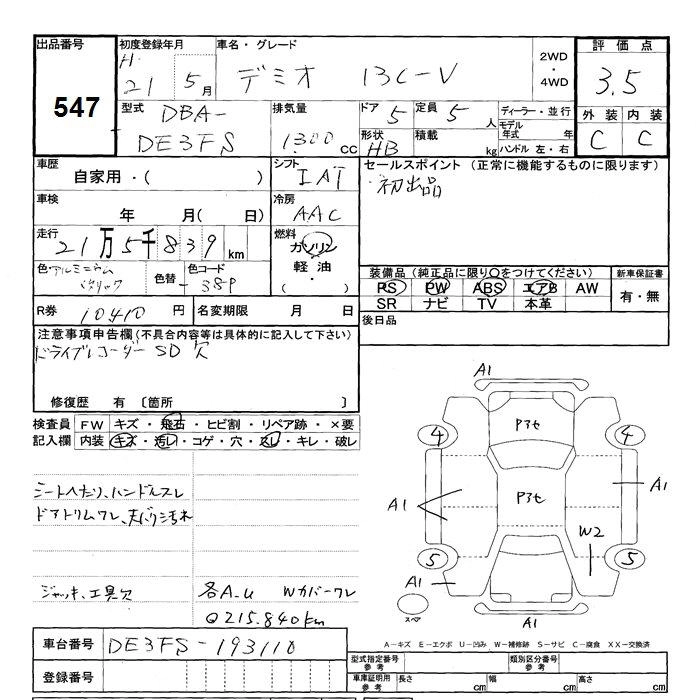 出品番号
547
初度登録年月
H.
21 5 月
車名・グレード
デミオ 13C-V
2WD
・
4WD
評価点
3.5
型式
DBA-
DE3FS
排気量
1300 CC
ドア 5
定員 5 人
形状
HB
積載 kg
ディーラー・並行
モデル
年式 年
ハンドル 左・右
外装 内装
C C
車歴
自家用・( )
シフト
IAT
セールスポイント (正常に機能するものに限ります)
初出品
車検
年 月( 日)
冷房
AAC
走行
21万5千839 km
燃料
ガソリン
軽油・
( )
色・アルミニウム
メタリック
色替
色コード
38P
装備品(純正品に限り○をつけてください)
PS PW ABS エアB AW
SR ナビ TV 本革
新車保証書
有・無
R券 10410 円
名変期限 月 日
後日品
注意事項申告欄(不具合内容等は具体的に記入して下さい)
ドライブレコーダー SD 欠
修復歴 有 〔箇所 〕
検査員
記入欄
FW キズ・飛石・ヒビ割・リペア跡・×要
内装 キズ・汚レ・コゲ・穴・スレ・キレ・破レ
シートヘたり、ハンドルスレ
ドアトリムワレ、天バリ汚れ
ジャッキ、工具欠
各A.u Wカバーワレ
Q215.840km
車台番号 DE3FS-193110
登録番号
A1
P3セ
4 4
P3セ
A1
A1
W2
5 5
A1
スペア
A1
A-キズ E-エクボ U-凹み W-補修跡 S-サビ C-腐食 XX-交換済
型式指定番号
参考
類別区分番号
参考
車庫証明用
参考
長さ cm
幅 cm
高さ cm